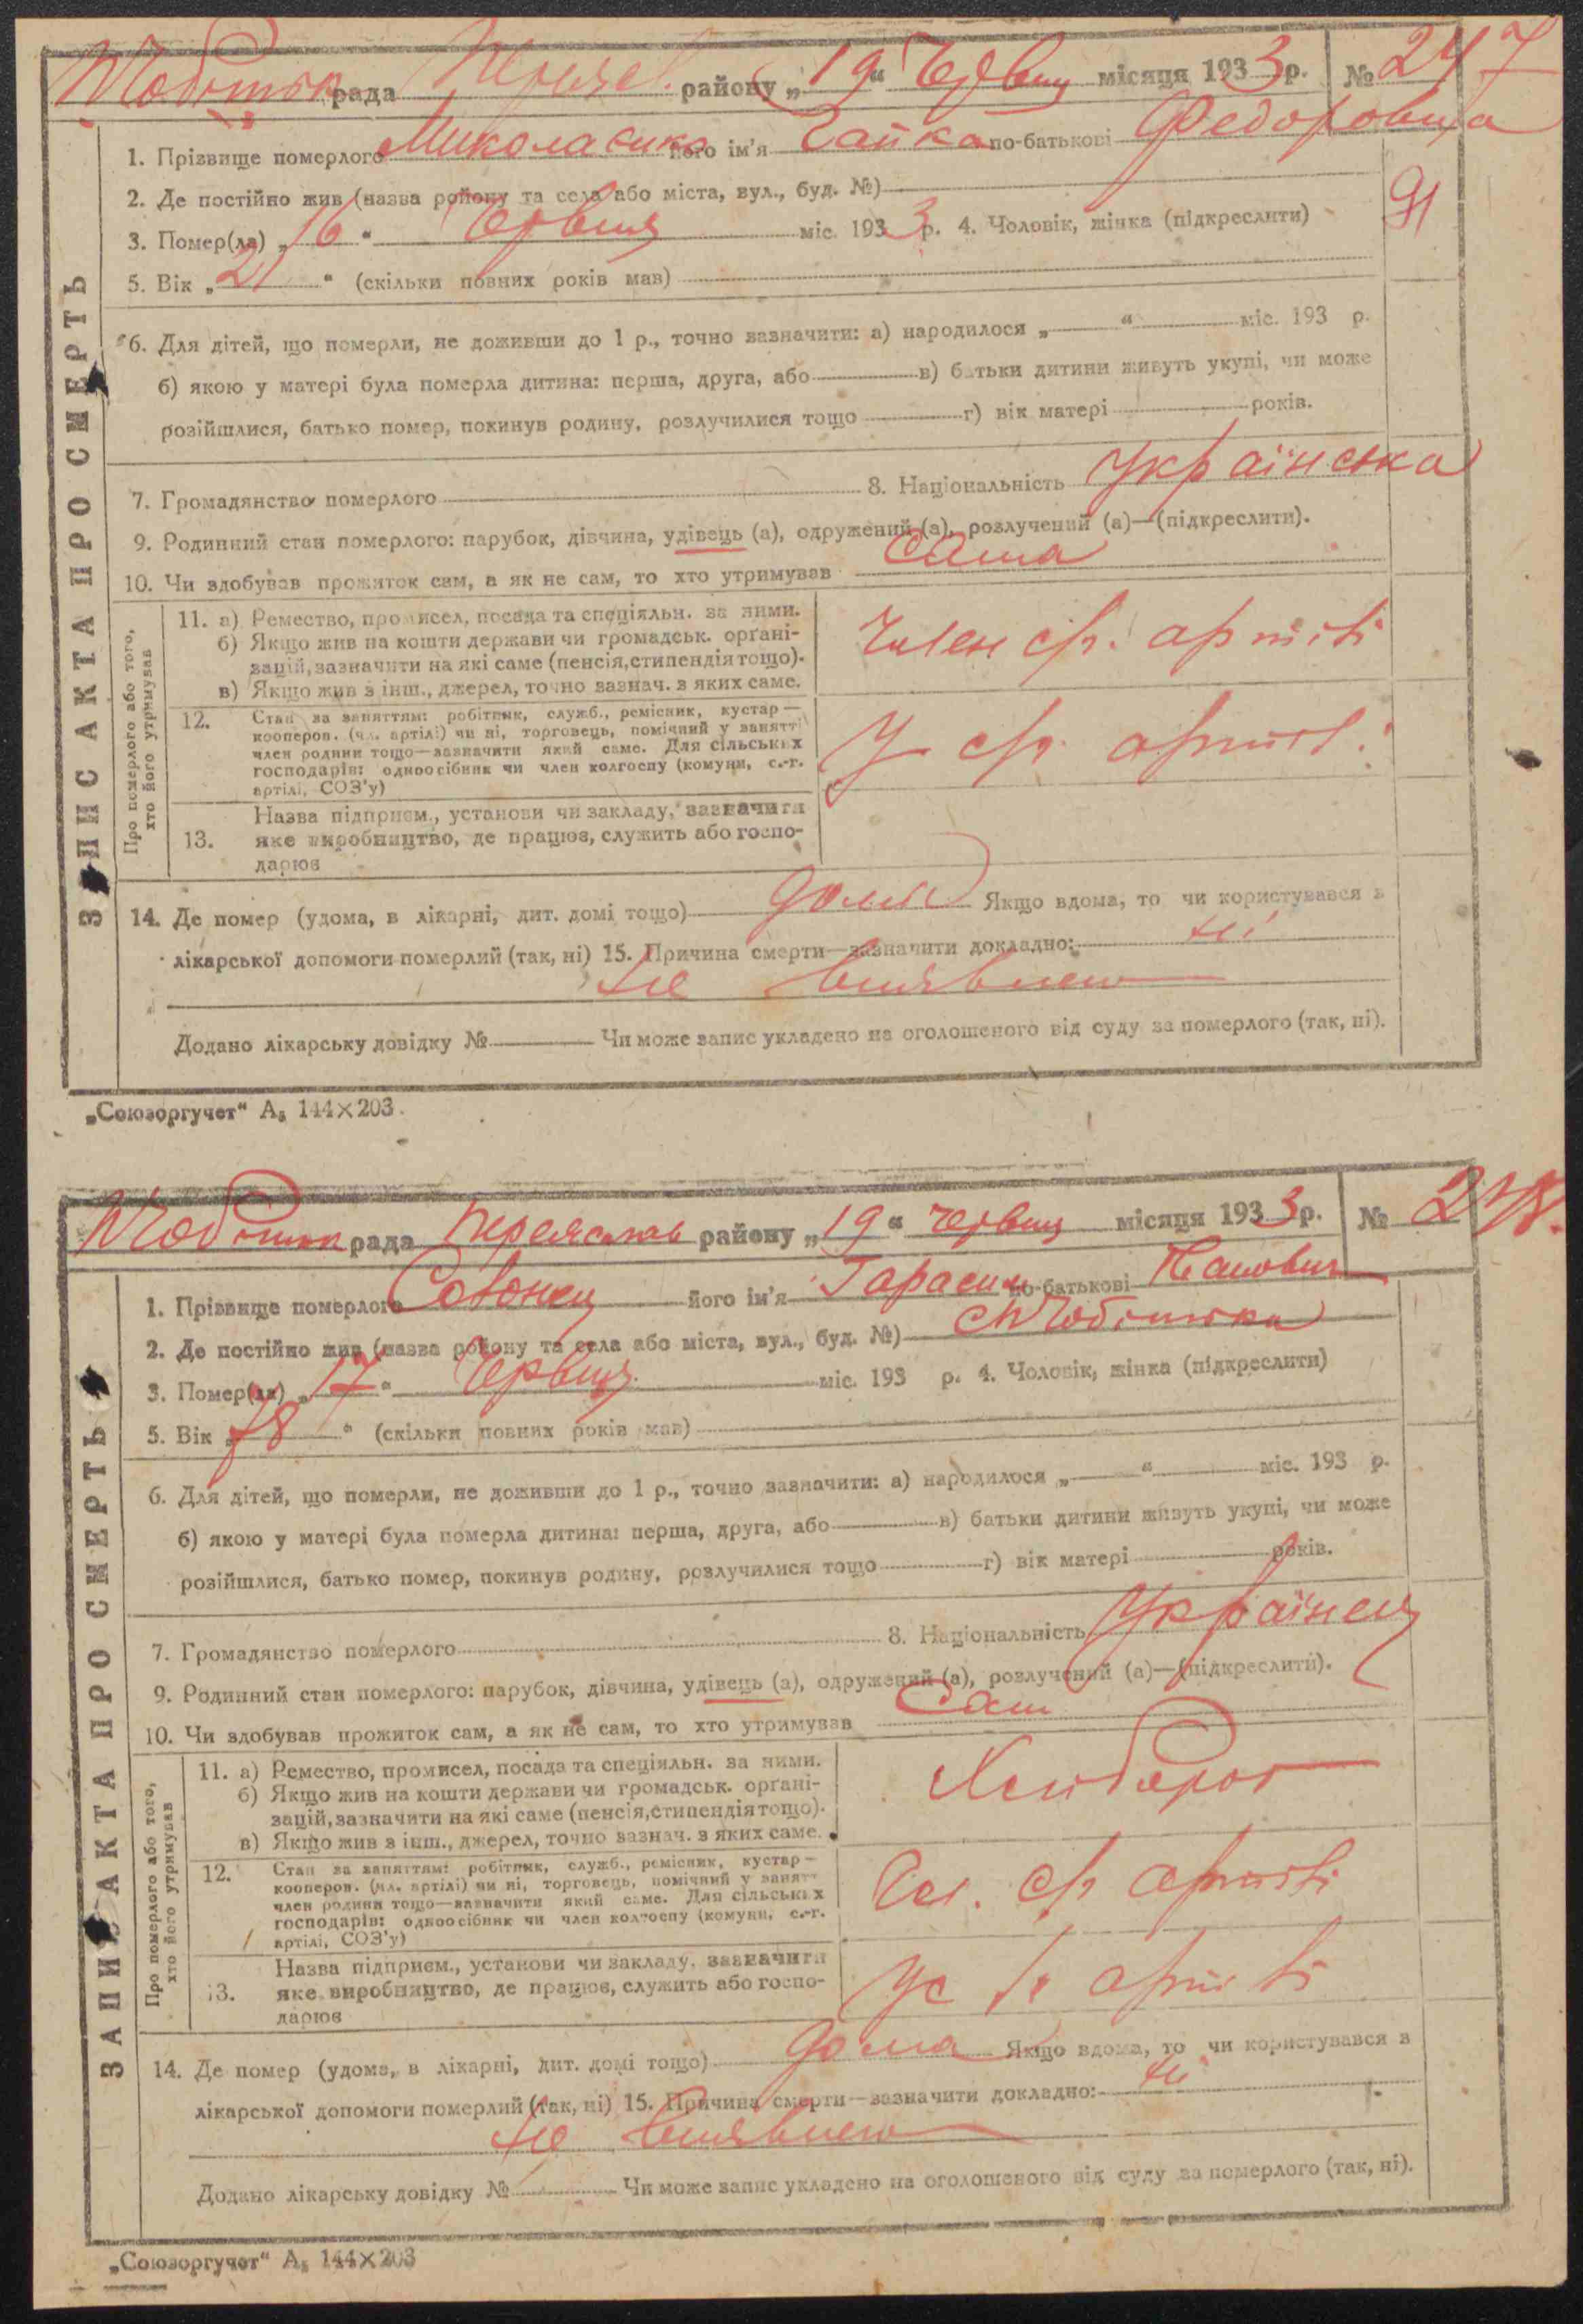 рада район у „19" Червця місяця 1933 р. № 247
1. Прізвище померлого Миколаєнко його ім'я Гапка по-батькові Федоровна
2. Де постійно жив (назва району та села або міста, вул., буд. №)
91
3. Помер(ла) „16" Червця міс. 1933 р. 4. Чоловік, жінка (підкреслити)
5. Вік „21" (скільки повних років мав)
6. Для дітей, що померли, не доживши до 1 р., точно зазначити: а) народилося „ " міс. 193 р.
б) якою у матері була померла дитина: перша, друга, або в) батьки дитини живуть укупі, чи може
розійшлися, батько помер, покинув родину, розлучилися тощо г) вік матері років.
7. Громадянство померлого 8. Національність Українська
9. Родинний стан померлого: парубок, дівчина, удівець (а), одружений (а), розлучений (а)—(підкреслити).
10. Чи здобував прожиток сам, а як не сам, то хто утримував сама
ЗАПИС АКТА ПРО СМЕРТЬ
Про померлого або того,
хто його утримував
11. а) Ремество, промисел, посада та спеціяльн. за ними.
б) Якщо жив на кошти держави чи громадськ. орґані-
зацій, зазначити на які саме (пенсія, стипендія тощо).
в) Якщо жив з інш., джерел, точно зазнач. з яких саме.
Член с/г. артілі
12. Стан за заняттям: робітник, служб., ремісник, кустар —
кооперов. (чл. артілі) чи ні, торговець, помічний у занятті
член родини тощо—зазначити який саме. Для сільських
господарів: одноосібник чи член колгоспу (комуни, с.-г.
артілі, СОЗ'у)
У с/г. артіл.
13. Назва підприєм., установи чи закладу, зазначити
яке виробництво, де працює, служить або госпо-
дарює
14. Де помер (удома, в лікарні, дит. домі тощо) дома Якщо вдома, то чи користувався в
лікарської допомоги померлий (так, ні) 15. Причина смерти—зазначити докладно: ні
не виявлено
Додано лікарську довідку № Чи може запис укладено на оголошеного від суду за померлого (так, ні).
„Союзоргучет" А₅ 144×203.
рада Переяслав район у „19" Червця місяця 1933 р. № 248.
1. Прізвище померлого його ім'я Гарасим по-батькові
2. Де постійно жив (назва району та села або міста, вул., буд. №)
3. Помер(ла) „17" Червця міс. 193 р. 4. Чоловік, жінка (підкреслити)
5. Вік „78" (скільки повних років мав)
6. Для дітей, що померли, не доживши до 1 р., точно зазначити: а) народилося „ " міс. 193 р.
б) якою у матері була померла дитина: перша, друга, або в) батьки дитини живуть укупі, чи може
розійшлися, батько помер, покинув родину, розлучилися тощо г) вік матері років.
7. Громадянство померлого 8. Національність Українец
9. Родинний стан померлого: парубок, дівчина, удівець (а), одружений (а), розлучений (а)—(підкреслити).
10. Чи здобував прожиток сам, а як не сам, то хто утримував Сам
ЗАПИС АКТА ПРО СМЕРТЬ
Про померлого або того,
хто його утримував
11. а) Ремество, промисел, посада та спеціяльн. за ними.
б) Якщо жив на кошти держави чи громадськ. орґані-
зацій, зазначити на які саме (пенсія, стипендія тощо).
в) Якщо жив з інш., джерел, точно зазнач. з яких саме.
Хлибороб
12. Стан за заняттям: робітник, служб., ремісник, кустар —
кооперов. (чл. артілі) чи ні, торговець, помічний у занятт
член родини тощо—зазначити який саме. Для сільських
господарів: одноосібник чи член колгоспу (комуни, с.-г.
артілі, СОЗ'у)
Чл. с/г артілі
13. Назва підприєм., установи чи закладу, зазначити
яке виробництво, де працює, служить або госпо-
дарює
У с/г артілі
14. Де помер (удома, в лікарні, дит. домі тощо) дома Якщо вдома, то чи користувався в
лікарської допомоги померлий (так, ні) 15. Причина смерти—зазначити докладно: ні
не виявлено
Додано лікарську довідку № Чи може запис укладено на оголошеного від суду за померлого (так, ні).
„Союзоргучет" А₅ 144×203